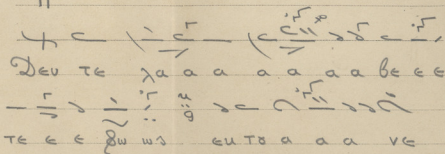 Δευ τε λα α α α α α α βε ε ε
τε ε ε δω ως ευ τȣ α α α νε